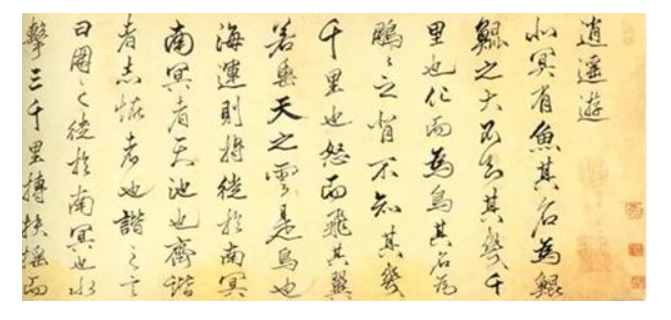 逍遙遊
北冥有魚其名為鯤
鯤之大不知其幾千
里也化而為鳥其名為
鵬々之背不知其幾
千里也怒而飛其翼
若垂天之雲是鳥也
海運則將徙於南冥
南冥者天池也齊諧
者志怪者也諧之言
曰鵬之徙於南冥也水
擊三千里摶扶搖而